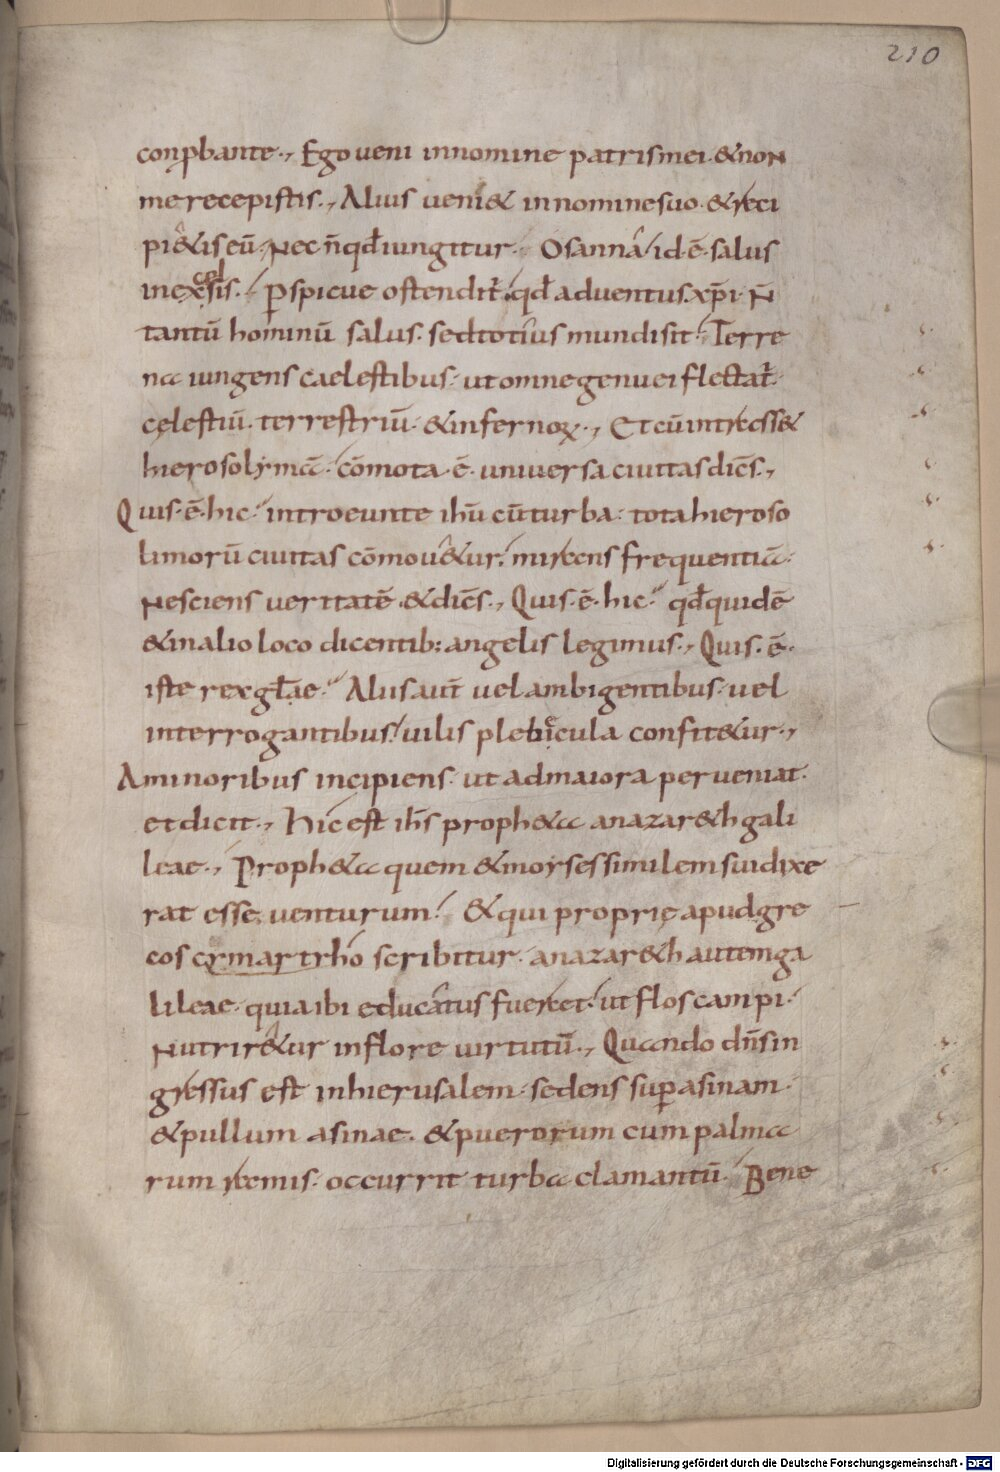 210
conꝓbante., Ego ueni innomine patris mei. & non
me recepistis., Alius ueni& innomine suo. & reci
pi&is eū., Nec n̄ qđ iungitur. Osanna id. ē. salus
inexcelsis. Pspicue ostendit̄. qđ aduentus. xp̄i. N̄
tantū hominū salus. sed totius mundi sit. Terre
na iungens caelestibus. ut omne genu ei flectat̄.
cęlestiū. terrestriū. & infernoꝝ., Et cū intrass&
hierosolymā. cōmota. ē. uniuersa ciuitas diēs.,
Quis. ē. hic. introeunte ihū cū turba. tota hieroso
limorū ciuitas cōmou&ur. mirans frequentiā.
Nesciens ueritatē. & diēs., Quis. ē. hic. qđ quidē
& in alio loco dicentib; angelis legimus., Quis. ē.
iste rex gl̄ae. Alii sāut uel ambigentibus. uel
interrogantibus. uilis plebicula confit&ur.,
A minoribus incipiens. ut ad maiora perueniat.
et dicit., Hic est ih̄s proph&a a nazar&h gali
leae., Proph&a quem & moyses similem sui dixe
rat esse uenturum. & qui proprie apud gre
cos cym artrho scribitur. a nazar&h autem ga
lileae. quia ibi educatus fuerat. ut flos campi.
Nutrir&ur in flore uirtutū., Quando dn̄s in
gressus est in hierusalem. sedens suꝑ asinam.
& pullum asinae. & puerorum cum palma
rum ramis. occurrit turba clamantū. Bene
Digitalisierung gefördert durch die Deutsche Forschungsgemeinschaft - DFG